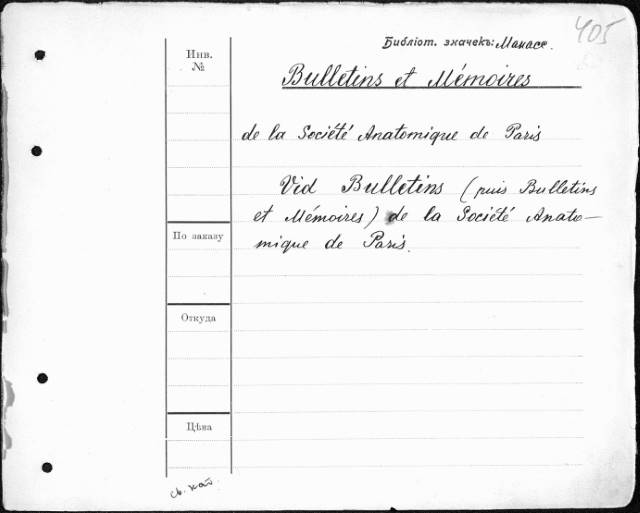 405
Библіот. значекъ: Манасе.
Инв.
№
Bulletins et Mémoires
de la Société Anatomique de Paris
Vid Bulletins (puis Bulletins
et Mémoires) de la Société Anato-
mique de Paris.
По заказу
Откуда
Цѣна
св. кат.